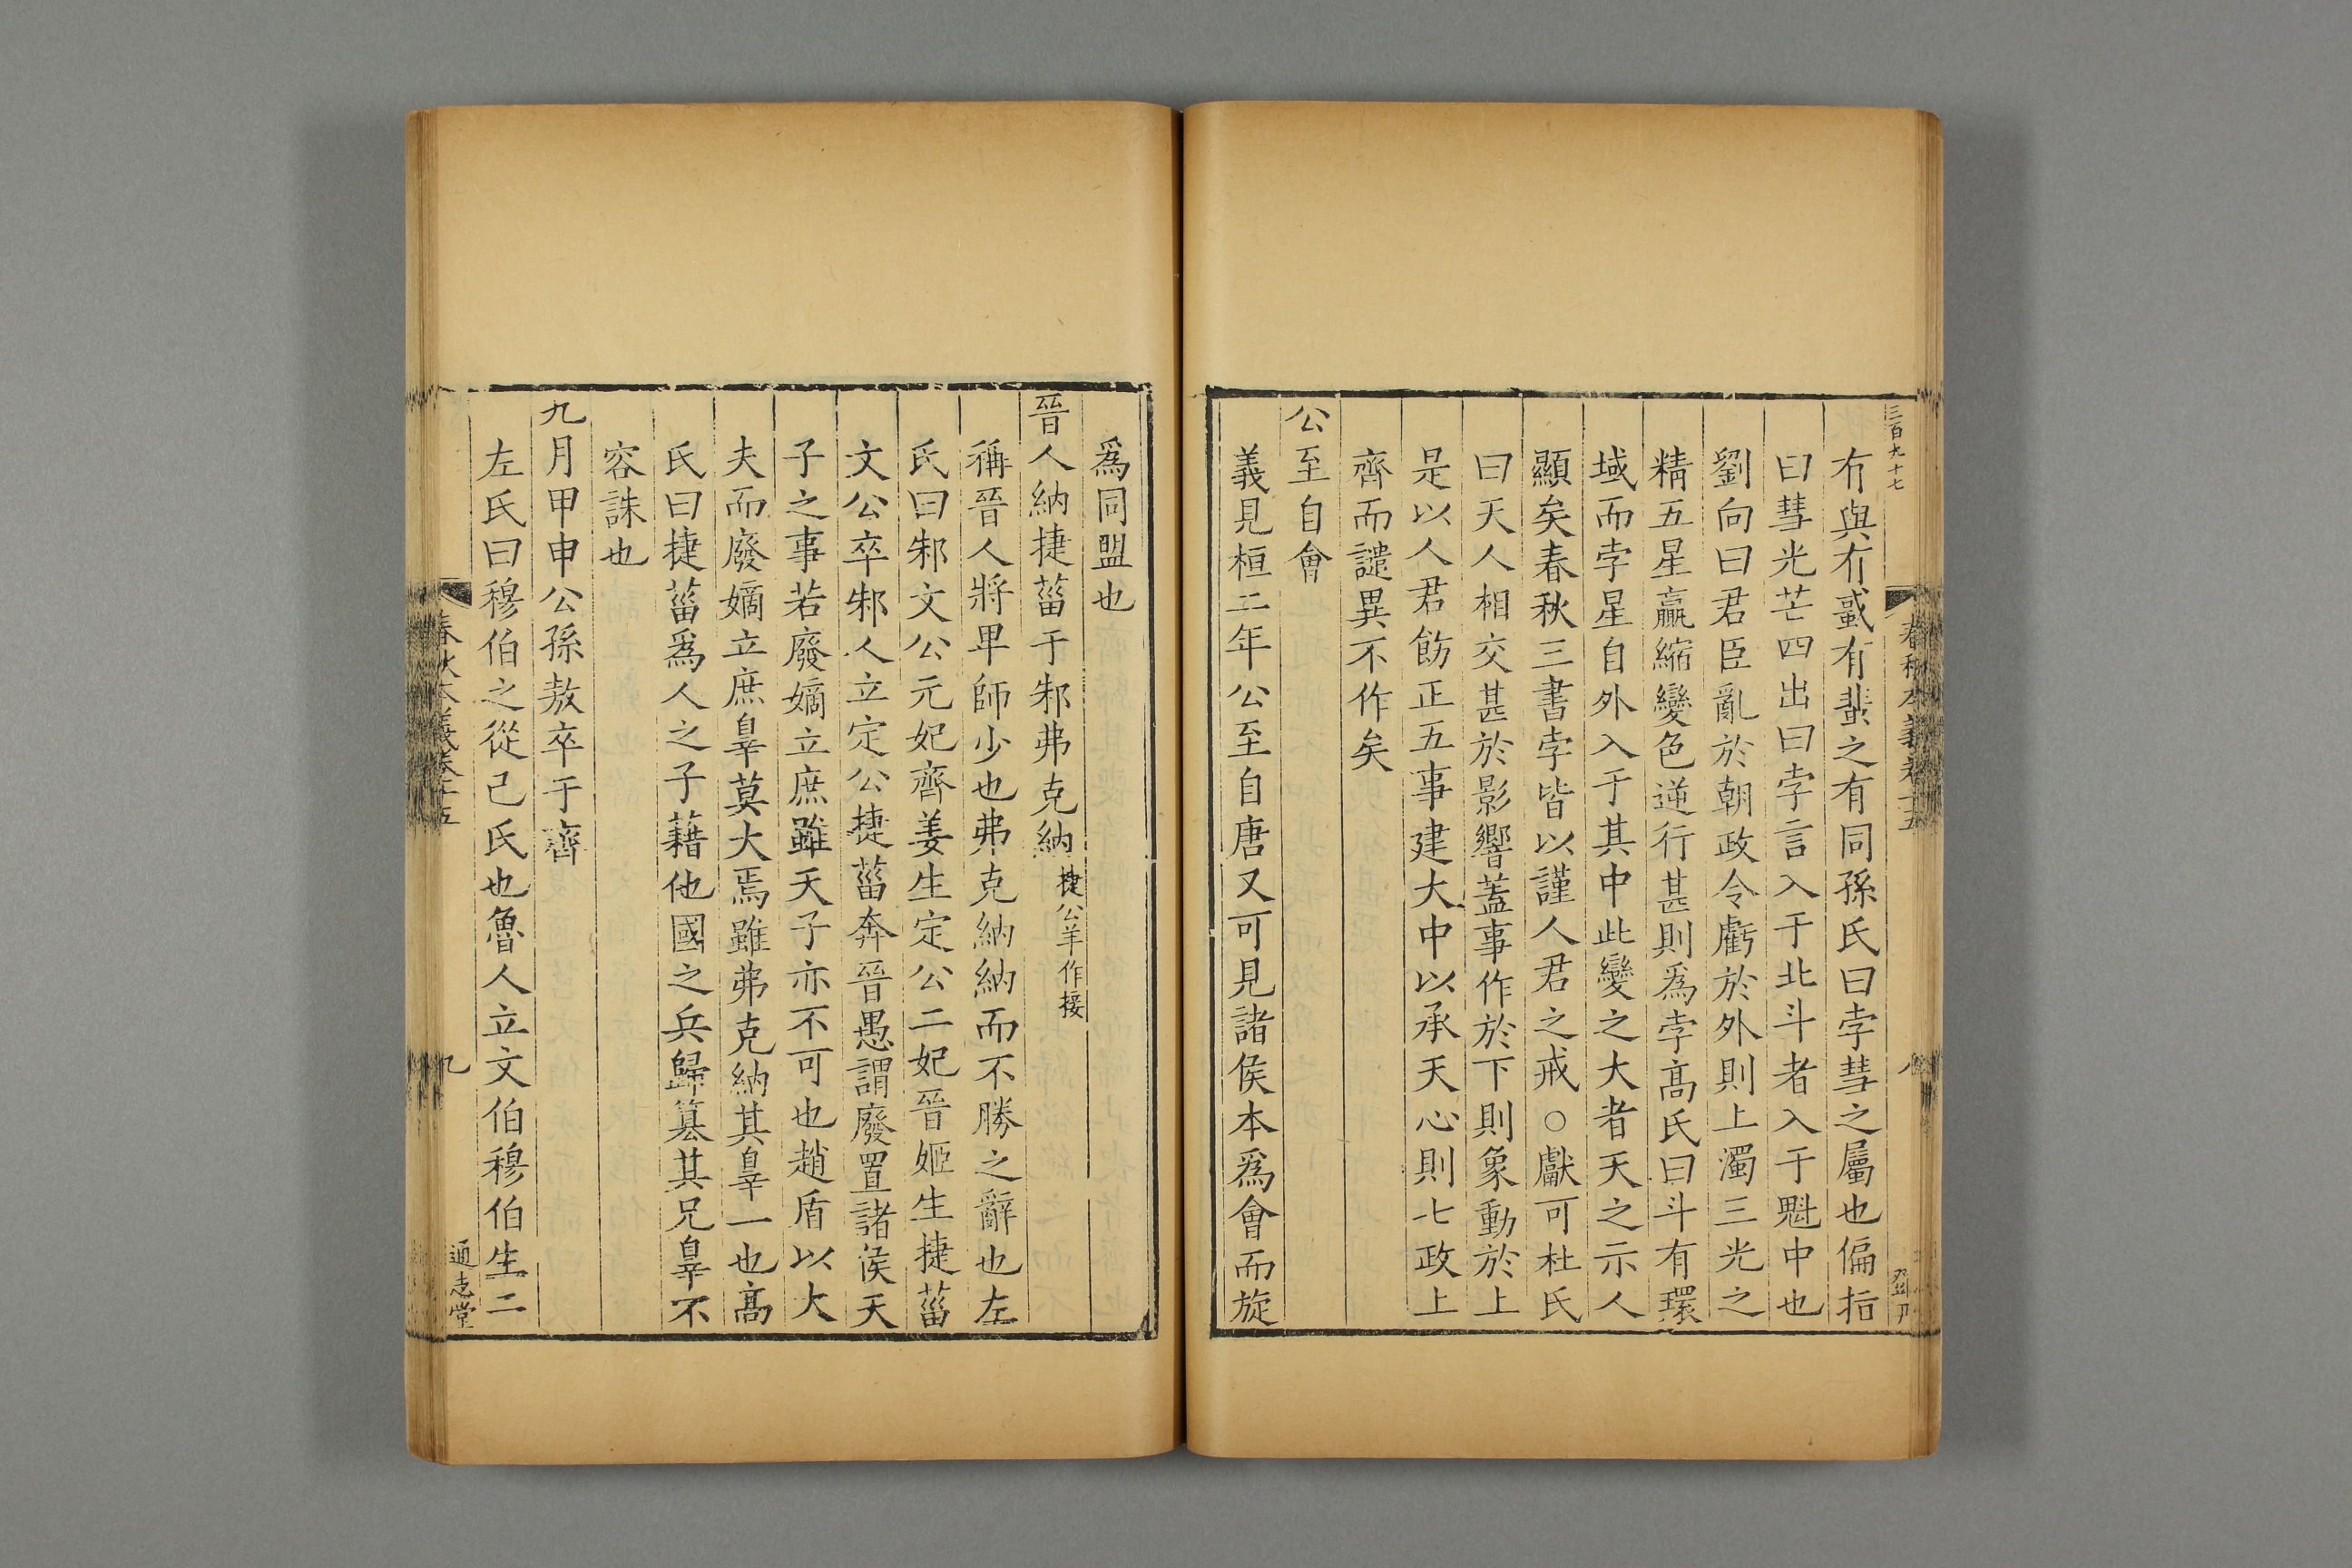 三百九十七
春秋本義卷十五
八
有與有蜮有蜚之有同孫氏曰孛彗之屬也偏指
曰彗光芒四出曰孛言入于北斗者入于魁中也
劉向曰君臣亂於朝政令虧於外則上濁三光之
精五星贏縮變色逆行甚則爲孛髙氏曰斗有環
域而孛星自外入于其中此變之大者天之示人
顯矣春秋三書孛皆以謹人君之戒○獻可杜氏
曰天人相交甚於影響蓋事作於下則象動於上
是以人君飭正五事建大中以承天心則七政上
齊而譴異不作矣
公至自會
義見桓二年公至自唐又可見諸侯本爲會而旋
爲同盟也
晉人納捷菑于邾弗克納捷公羊作接
稱晉人將卑師少也弗克納納而不勝之辭也左
氏曰邾文公元妃齊姜生定公二妃晉姬生捷菑
文公卒邾人立定公捷菑奔晉愚謂廢置諸侯天
子之事若廢嫡立庶雖天子亦不可也趙盾以大
夫而廢嫡立庶辠莫大焉雖弗克納其辠一也髙
氏曰捷菑爲人之子藉他國之兵歸簒其兄辠不
容誅也
九月甲申公孫敖卒于齊
左氏曰穆伯之從己氏也魯人立文伯穆伯生二
春秋本義卷十五
九
通志堂